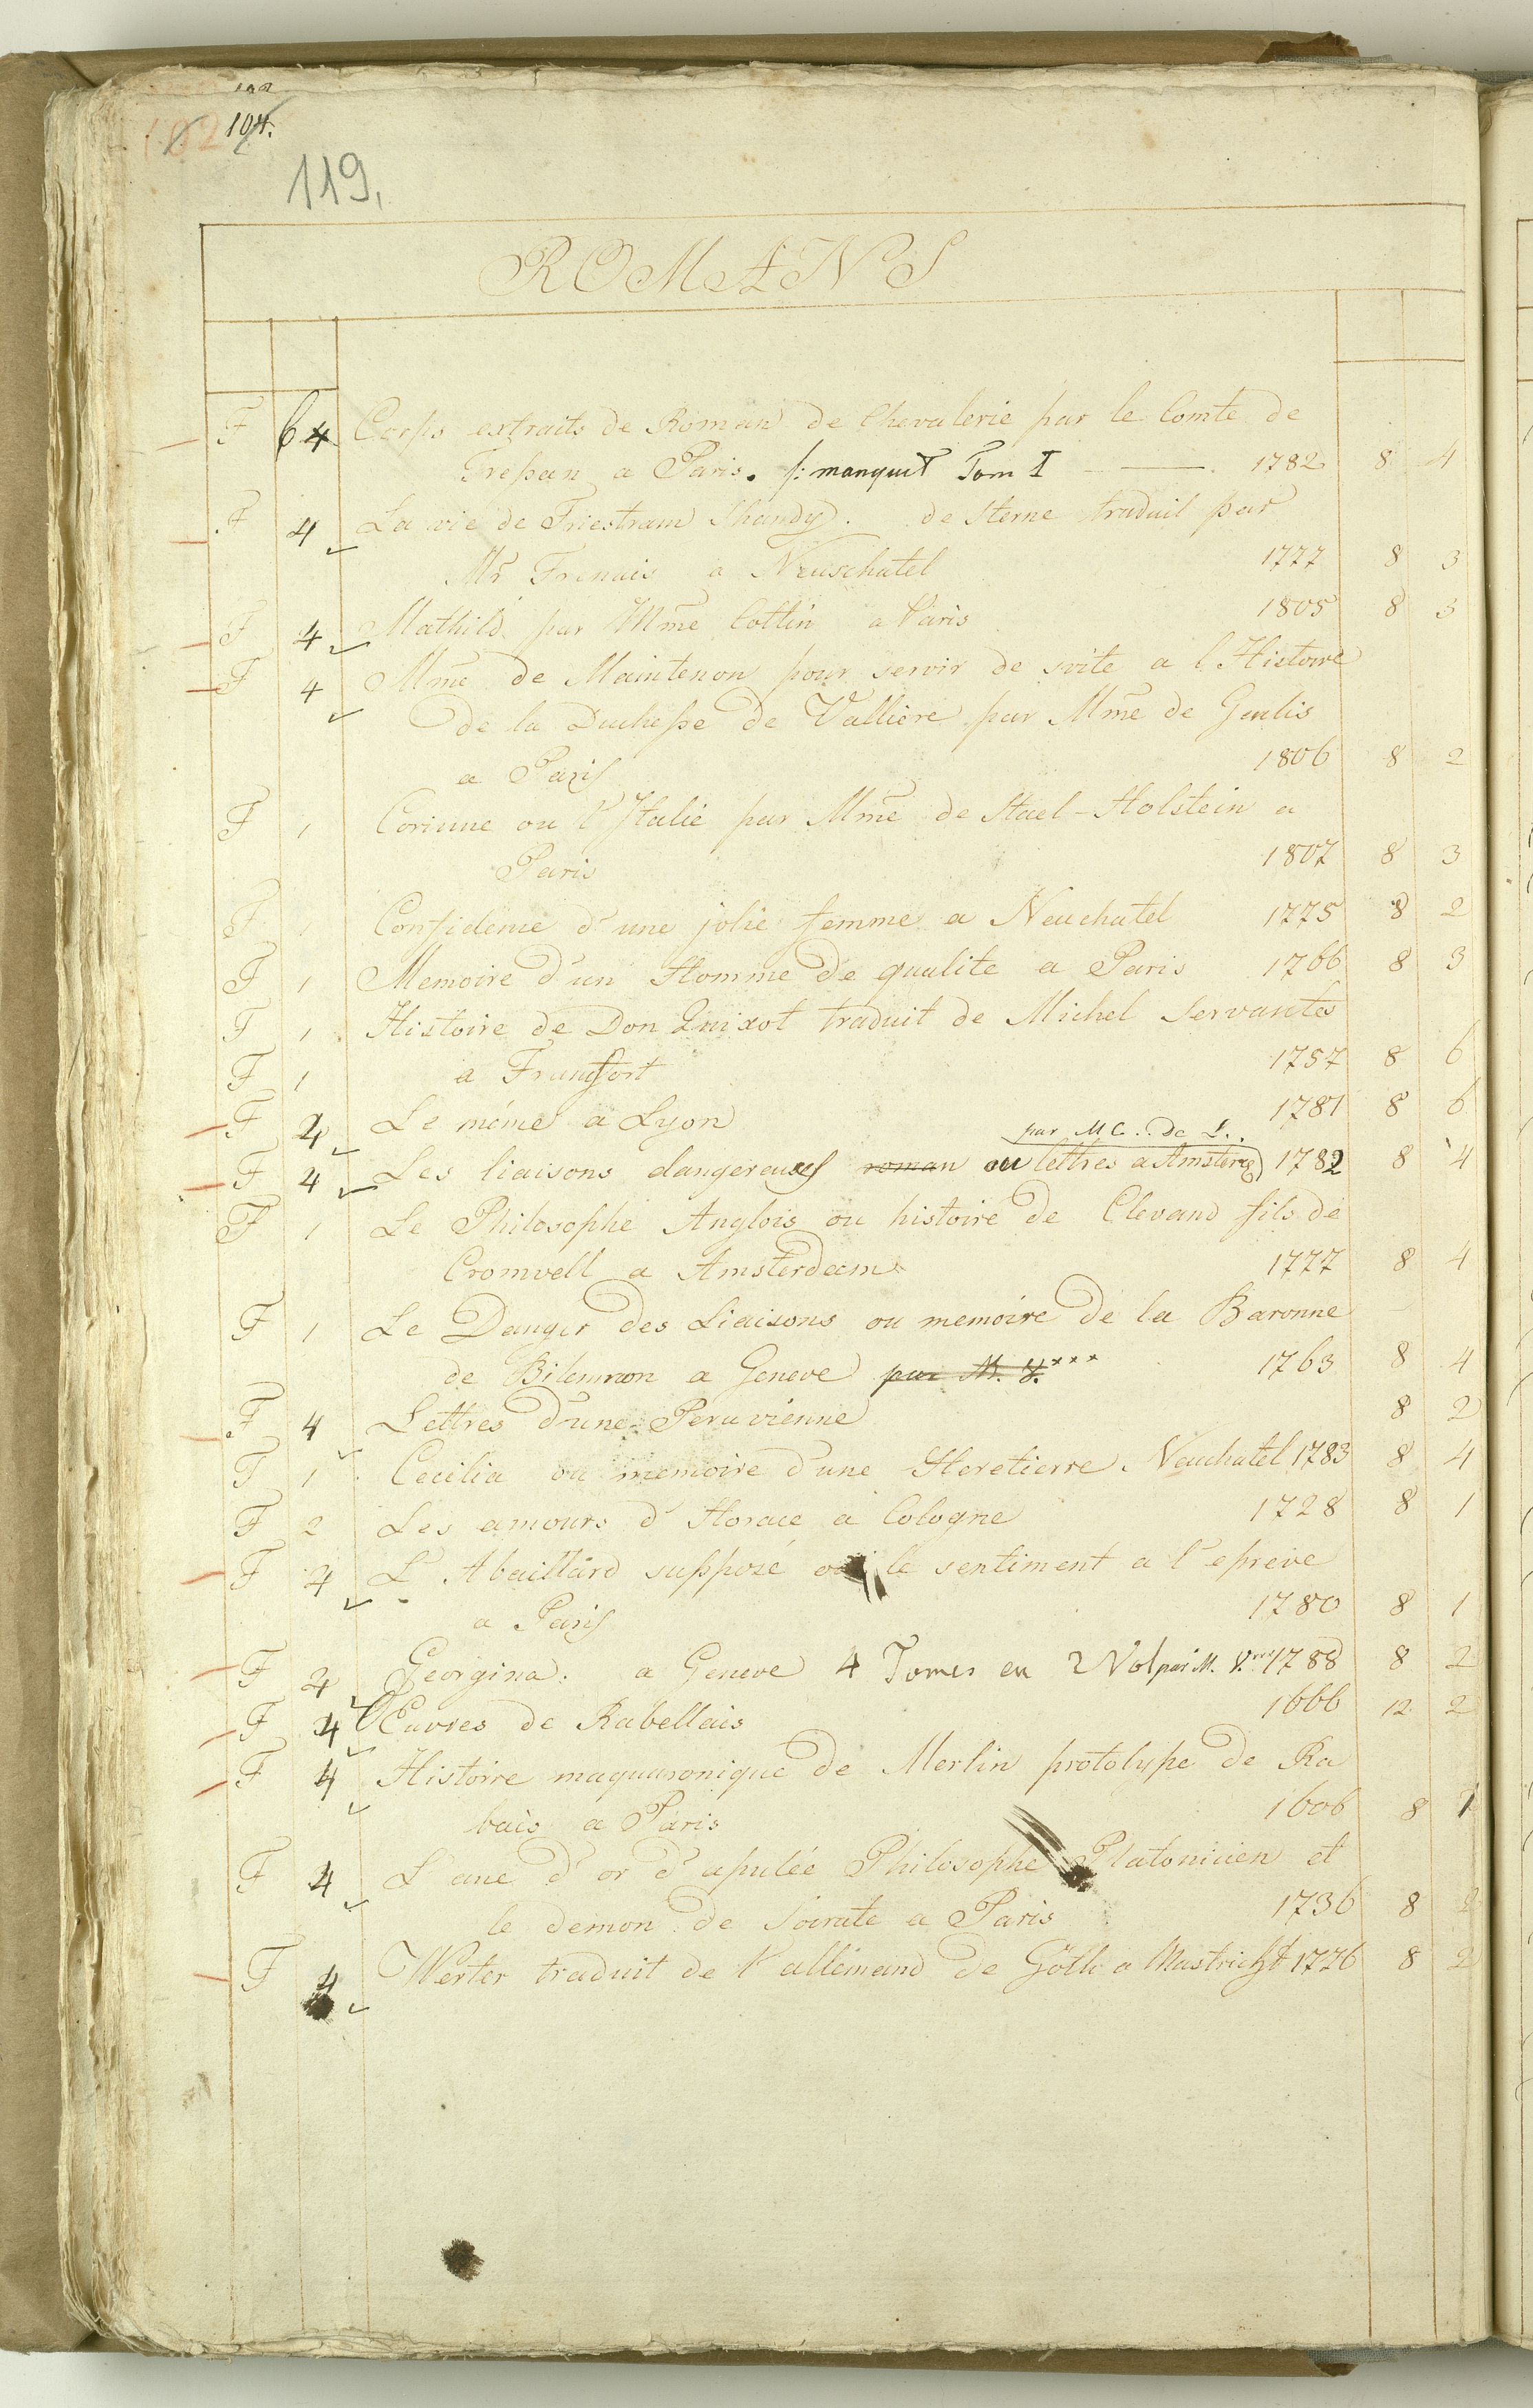 102 104.
119.
ROMANS
F 64 Corps extraits de Roman de Chevalerie par le Comte de
Trepan a Paris. /: manquit Tom I 1782 8 4
F 4 La vie de Triestram Shandy. de Sterne traduit par
Mr Frenais a Neuschatel 1777 8 3
F 4 Mathild par Mme Cottin a Paris 1805 8 3
F 4 Mme de Maintenon pour servir de svite a l'Histoire
de la Duchesse de Valliere par Mme de Genlis
a Paris 1806 8 2
F 1 Corinne ou l'Italie par Mme de Stael-Holstein a
Paris 1807 8 3
F 1 Confidence d'une jolie femme a Neuchatel 1775 8 2
F 1 Memoire d'un Homme de qualite a Paris 1766 8 3
F 1 Histoire de Don Quixot traduit de Michel Servantes
F 1 a Francfort 1757 8 6
F 4 Le même a Lyon 1781 8 6
par M C.. de L..
F 4 Les liaisons dangereuses roman ou lettres a Amsterd 1782 8 4
F 1 Le Philosophe Anglois ou histoire de Clevand fils de
Cromvell a Amsterdam 1777 8 4
F 1 Le Danger des Liaisons ou memoire de la Baronne
de Blemron a Geneve par M. Y.*** 1763 8 4
F 4 Lettres d'une Peruvienne 8 2
F 1 Cecilia ou memoire d'une Heretierre Neuchatel 1783 8 4
F 2 Les amours d'Horace a Cologne 1728 8 1
F 4 L'Abaillard supposé ou le sentiment a l'epreive
a Paris 1780 8 1
F 4 Georgina. a Geneve 4 Tomes en 2 Vol par M. Y.*** 1788 8 2
F 4 Œuvres de Rabellais 1666 12 2
F 4 Histoire maquaronique de Merlin prototype de Ra
bais a Paris 1606 8 1
F 4 L'ane d'or d'apulée Philosophe Platonicien et
le demon de Socrate a Paris 1736 8 2
F 4 Werter traduit de l'allemand de Göthe a Mastricht 1776 8 2